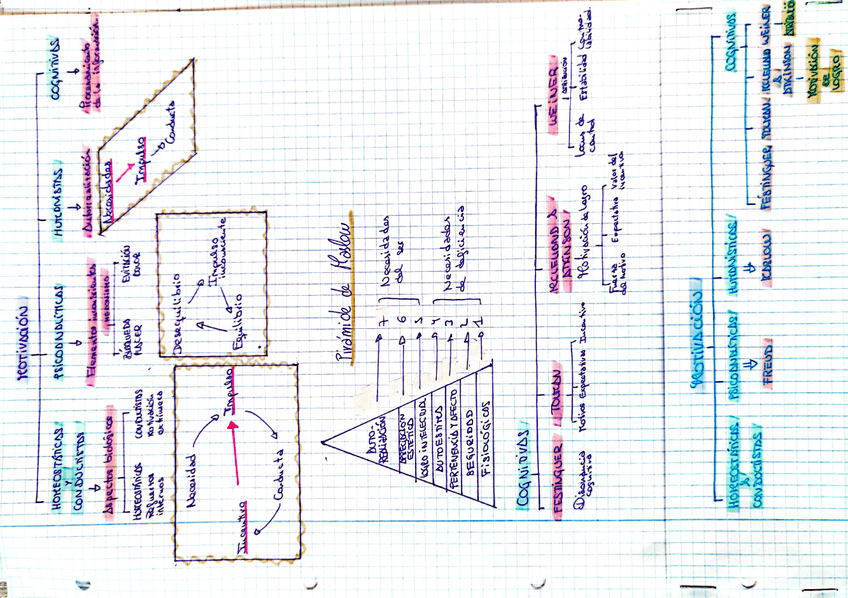 MOTIVACIÓN
HOMEOSTÁTICAS
Y
CONDUCTISTAS
PSICOANALÍTICAS
HUMANISTAS
COGNITIVAS
Aspectos biológicos
Elementos inconscientes
Autorrealización
Procesamiento
de la información
HEDONISMO
HOMEOSTÁTICOS
Requisitos
internos
CONDUCTISTAS
Motivación
extrínseca
BÚSQUEDA
PLACER
EVITACIÓN
DOLOR
Necesidad
Incentivo
Impulso
Conducta
Desequilibrio
Impulso
Equilibrio
Necesidades
Impulso
Conducta
Pirámide de Maslow
AUTO-
REALIZACIÓN
APRECIACIÓN
ESTÉTICA
LOGRO INTELECTUAL
AUTOESTIMA
PERTENENCIA Y AFECTO
SEGURIDAD
FISIOLÓGICAS
7
6
5
4
3
2
1
Necesidades
del ser
Necesidades
de deficiencia
COGNITIVAS
FESTINGUER
TOLMAN
McCLELLAND &
ATKINSON
WEINER
Disonancia
cognitiva
Motivos Expectativas Incentivo
Motivación de logro
Fuerza
del motivo
Expectativa
Valor del
incentivo
Atribución
Locus de
control
Estabilidad
MOTIVACIÓN
HOMEOSTÁTICAS
&
CONDUCTISTAS
PSICOANALÍTICAS
HUMANÍSTICAS
COGNITIVAS
FREUD
MASLOW
FESTINGUER TOLMAN McCLELLAND
&
ATKINSON
WEINER
MOTIVACIÓN
DE
LOGRO